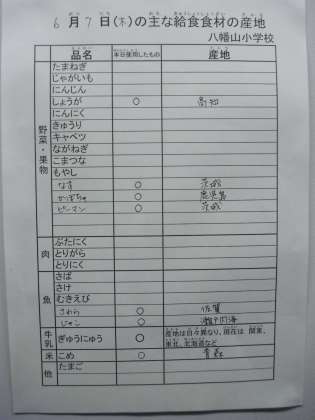 6月7日(木)の主な給食食材の産地
八幡山小学校
品名 本日使用したもの 産地
野菜・果物
たまねぎ
じゃがいも
にんじん
しょうが ○ 高知
にんにく
きゅうり
キャベツ
ながねぎ
こまつな
もやし
なす ○ 茨城
かぼちゃ ○ 鹿児島
ピーマン ○ 茨城
肉
ぶたにく
とりがら
とりにく
魚
さば
さけ
むきえび
さわら ○ 佐賀
○ 瀬戸内海
牛乳 ぎゅうにゅう ○ 産地は日々異なり、現在は 関東、
東北、北海道など
米 こめ ○ 青森
他 たまご